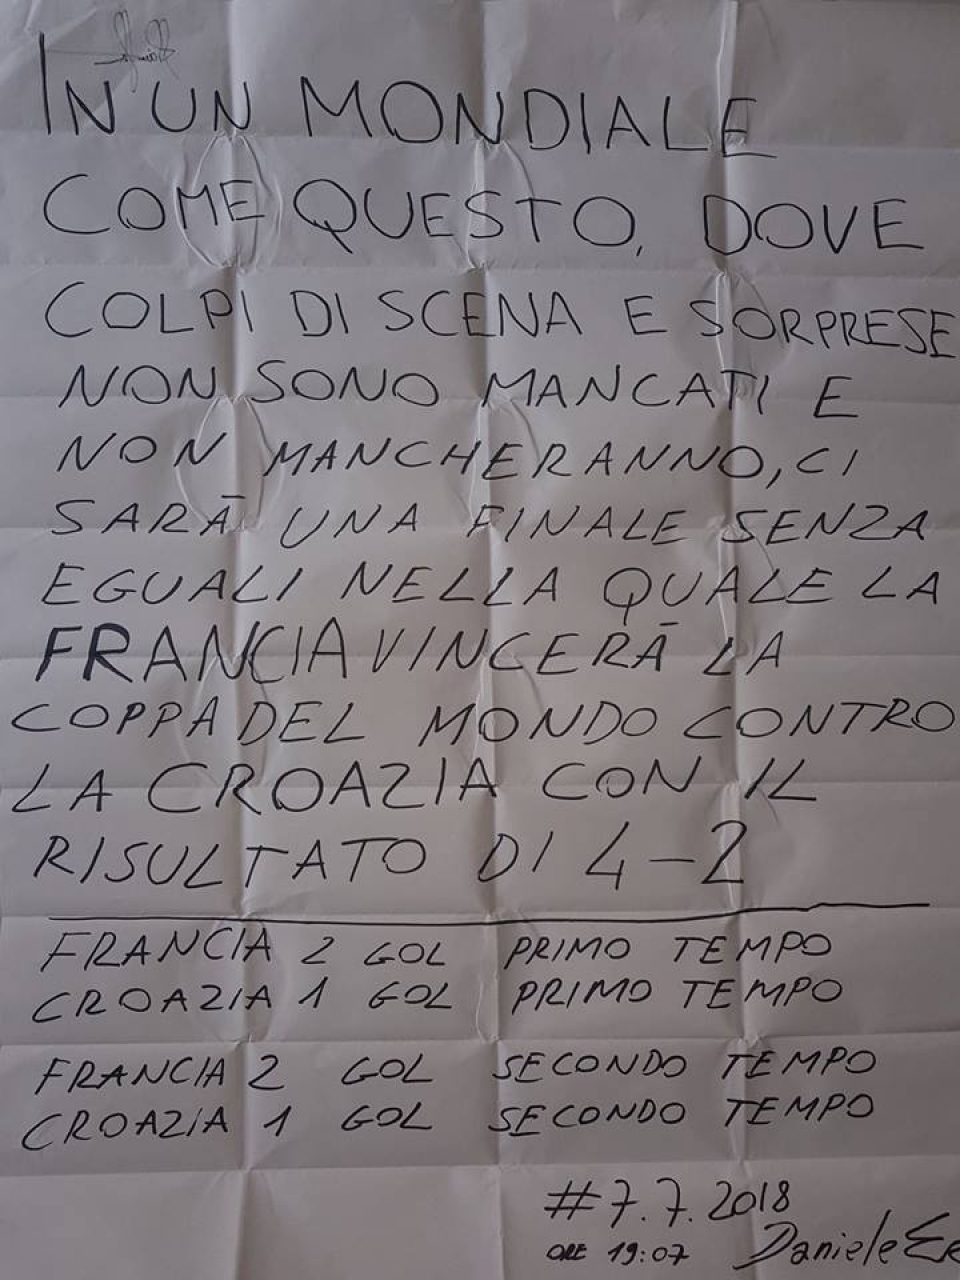 IN UN MONDIALE
COME QUESTO, DOVE
COLPI DI SCENA E SORPRESE
NON SONO MANCATI E
NON MANCHERANNO, CI
SARÀ UNA FINALE SENZA
EGUALI NELLA QUALE LA
FRANCIA VINCERÀ LA
COPPA DEL MONDO CONTRO
LA CROAZIA CON IL
RISULTATO DI 4-2
FRANCIA 2 GOL PRIMO TEMPO
CROAZIA 1 GOL PRIMO TEMPO
FRANCIA 2 GOL SECONDO TEMPO
CROAZIA 1 GOL SECONDO TEMPO
#7.7.2018
ORE 19:07 Daniele